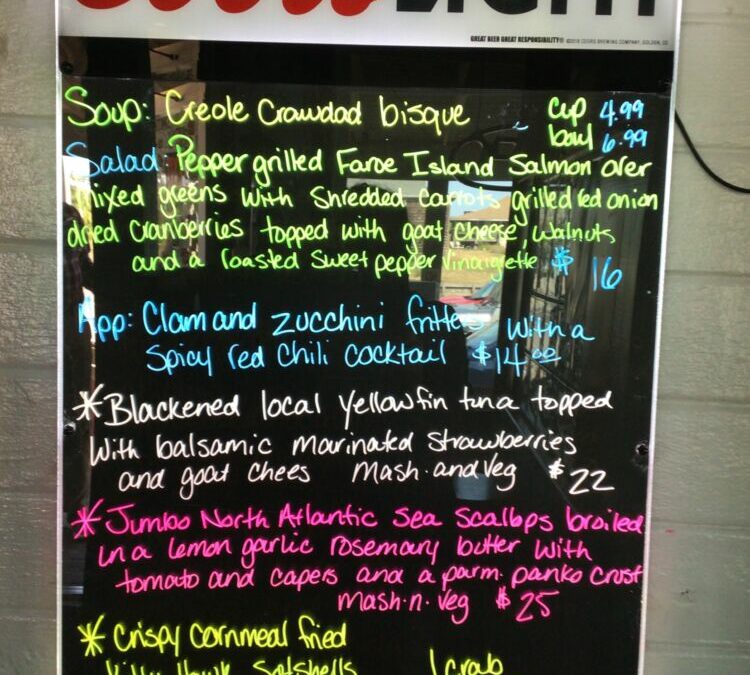 Coors LIGHT
GREAT BEER GREAT RESPONSIBILITY® ©2016 COORS BREWING COMPANY, GOLDEN, CO
Soup: Creole Crawdad bisque cup 4.99
bowl 6.99
Salad: Pepper grilled Faroe Island Salmon over
mixed greens with Shredded Carrots grilled red onion
dried cranberries topped with goat cheese, walnuts
and a roasted sweet pepper vinaigrette $ 16
App: Clam and zucchini fritters with a
Spicy red chili cocktail $14.00
*Blackened local yellowfin tuna topped
with balsamic marinated strawberries
and goat chees mash. and veg $22
*Jumbo North Atlantic Sea Scallops broiled
in a lemon garlic rosemary butter with
tomato and capers and a parm. panko crust
mash. n. veg $25
*Crispy cornmeal fried
Kitty Hawk Softshells 1 crab